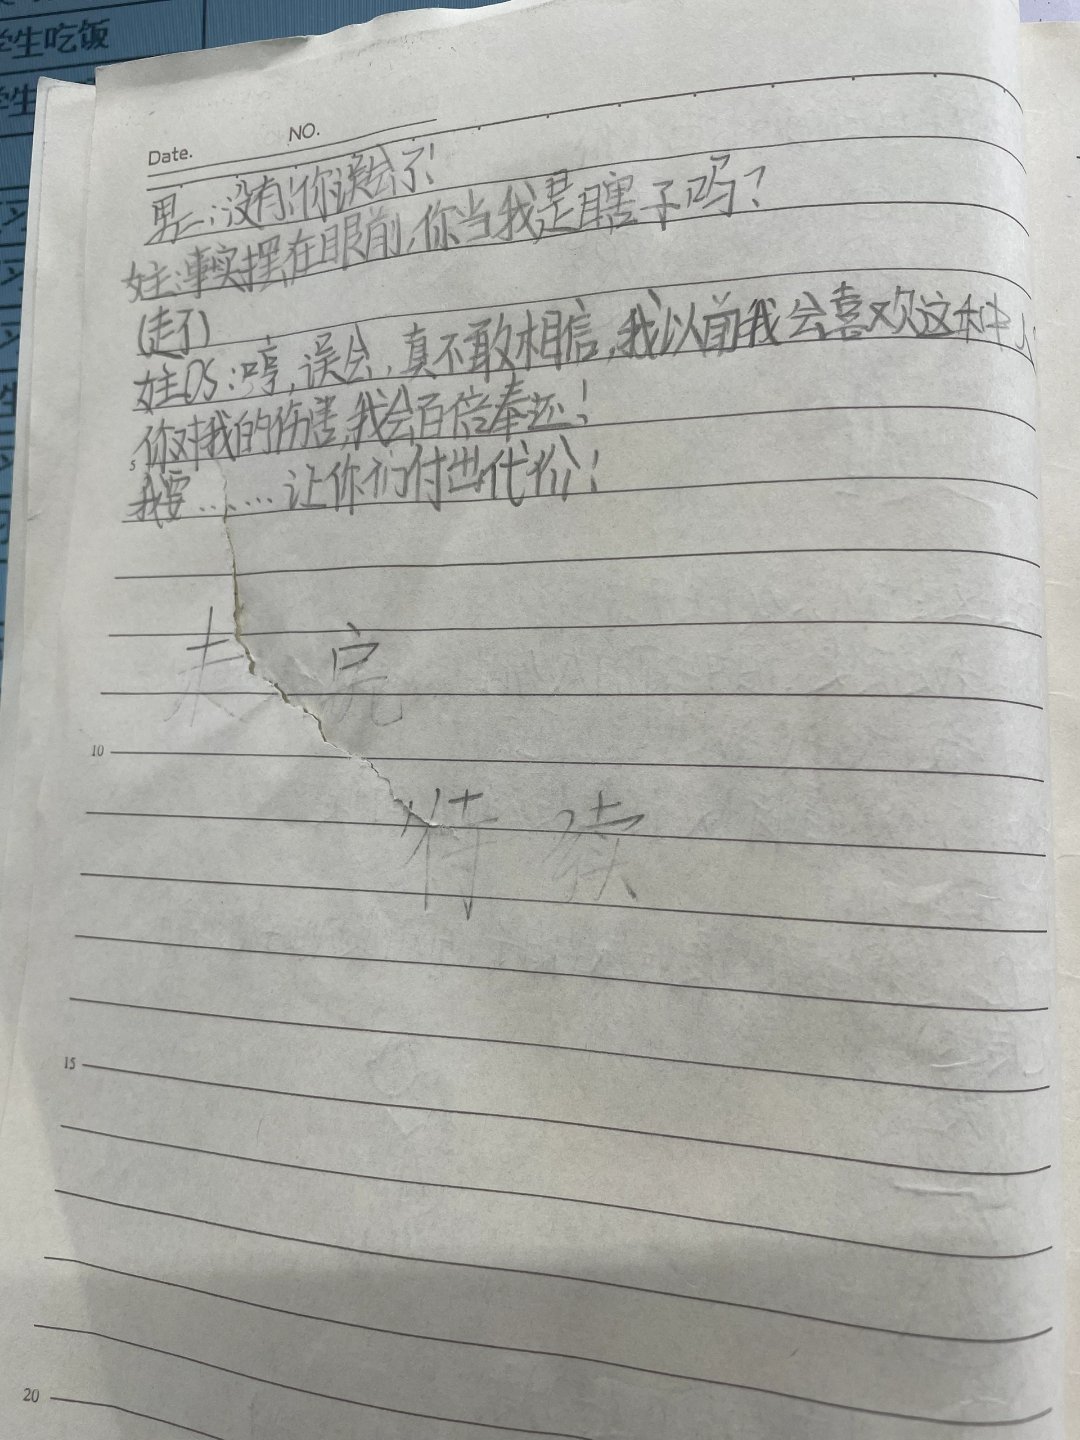 学生吃饭
学生
Date.
NO.
男二:没有!你误会了!
女主:事实摆在眼前,你当我是瞎子吗?
(走了)
女主OS:哼,误会,真不敢相信,我以前我会喜欢这种人
5 你对我的伤害,我会百倍奉还!
我要……让你们付出代价!
未完
10
待续
15
20